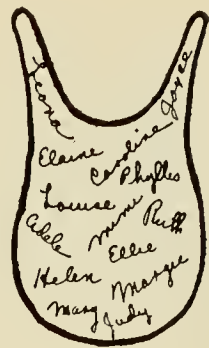 Leona
Joyce
Elaine
Caroline
Phyllis
Louise
Adele
Mimi
Ruth
Ellie
Helen
Margie
Mary
Judy